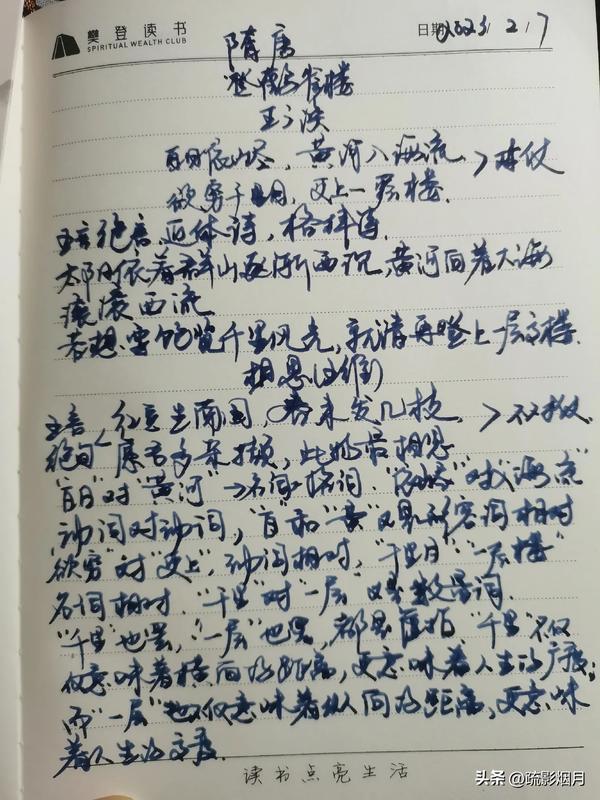 樊登读书
SPIRITUAL WEALTH CLUB
日期 2023 / 2 / 7
隋唐
登鹳雀楼
王之涣
白日依山尽，黄河入海流 > 对仗
欲穷千里目，更上一层楼.
五言绝言，近体诗，格律诗.
太阳依着群山逐渐西沉，黄河向着大海
滚滚西流
若想要饱览千里风光，就请再登上一层高楼.
相思(王维)
五言 红豆生南国，春来发几枝 > 不对仗
绝句 愿君多采撷，此物最相思
"白日"对"黄河" →名词对名词. "依山尽"对"入海流"
动词对动词，"白"和"黄"又是形容词相对
"欲穷"对"更上"，动词相对，"千里目""一层楼"
名词相对. "千里"对"一层" 又是数量词.
"千里"也罢，"一层"也罢，都是虚指. "千里"不仅
仅意味着横向的距离，更意味着人生的广度；
而"一层"也不仅意味着纵向的距离，更意味
着人生的高度.
读书点亮生活
头条@疏影烟月